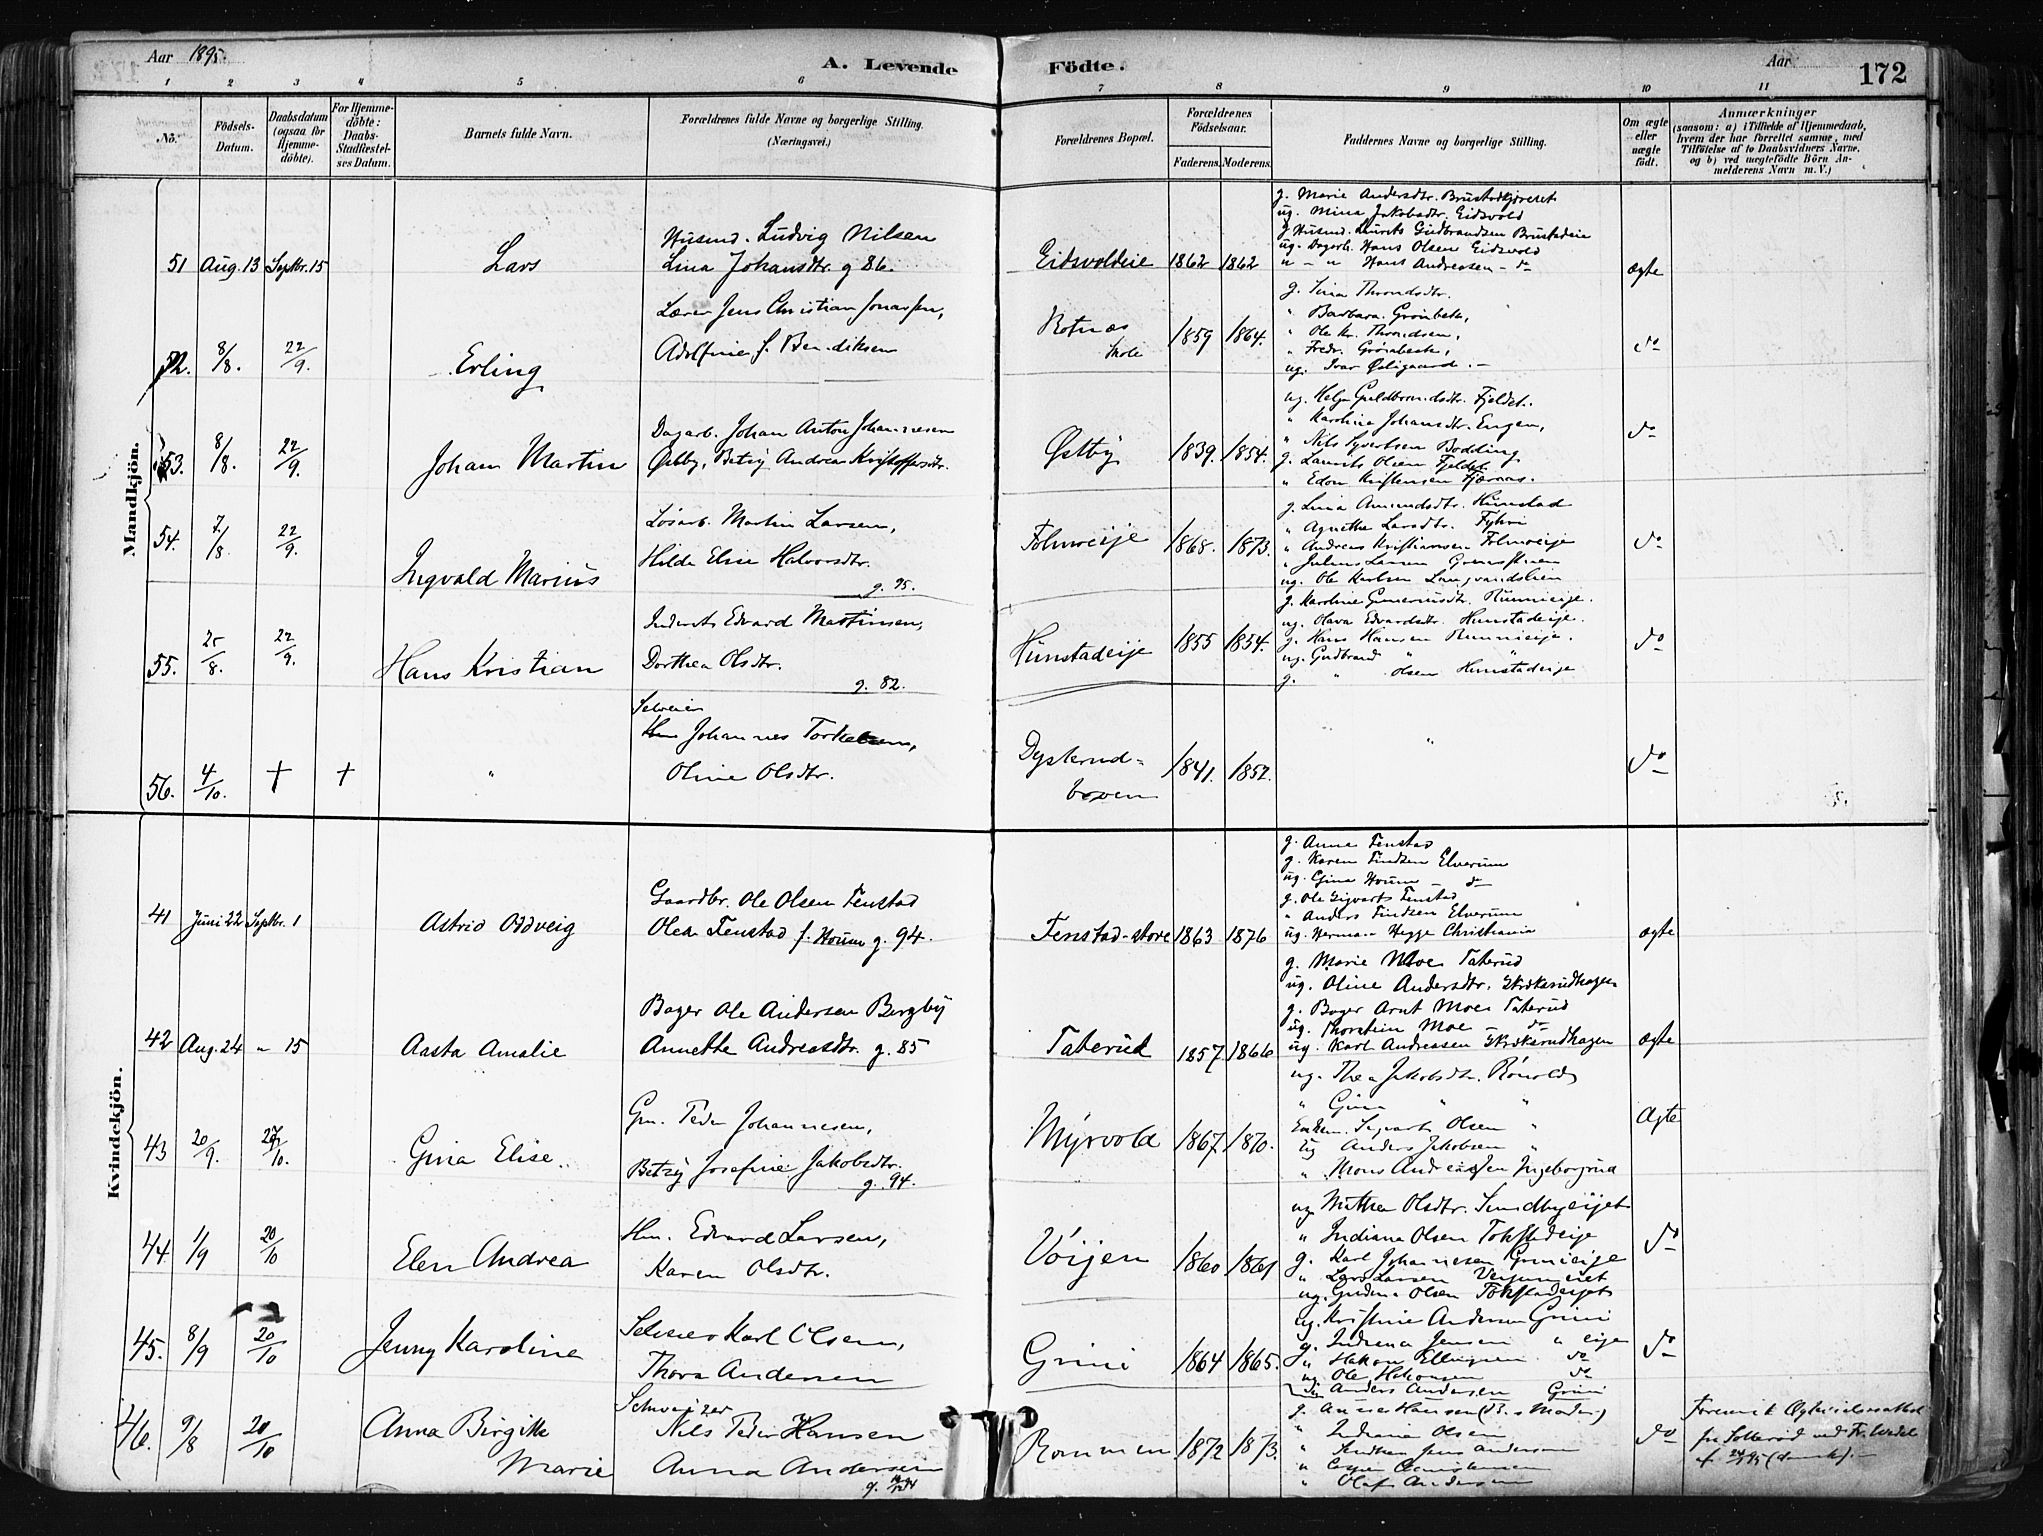 Aar 1895.
A. Levende
Födte.
Aar
172
1 2 3 4 5 6 7 8 9 10 11
No.
Födsels-Datum.
Daabsdatum (ogsaa for Hjemmedöbte).
For Hjemmedöbte: Daabs-Stadfæstelses Datum.
Barnets fulde Navn.
Forældrenes fulde Navne og borgerlige Stilling.
(Næringsvei.)
Forældrenes Bopæl.
Forældrenes Födselsaar.
Faderens. Moderens.
Faddernes Navne og borgerlige Stilling.
Om ægte eller uægte födt.
Anmærkninger
(saasom: a) i Tilfælde af Hjemmedaab,
hvem der har forrettet samme, med
Tilföielse af to Daabsvidners Navne,
og b) ved uægtefödte Börn Anmelderens Navn m. V.)
Mandkjön.
g. Marie Andersdtr. Brustadkjernet
ug. Mina Jakobsdtr. Eidsvold
g. Husmd. Laurits Gudbrandsen Brustadeie
Husmd. Ludvig Nilsen
ug. Dagarb. Hans Olsen Eidsvold
51 Aug. 13 Septbr. 15 Lars Lina Johansdtr. g 86. Eidsvoldeie 1862 1862 " - " Hans Andreasen - do ægte
g. Lina Throndsdtr.
Lærer Jens Christian Jonassen,
" Barbara Grönbeck,
" Ole Kr. Throndsen,
52. 8/8. 22/9. Erling Adolfine f. Bendiksen Rotnæs Skole 1859 1864. " Fredr. Grønbeck, do
ug. Ivar Østigaard. -
ug. Helga Guldbrandsdtr. Fjeldet.
Dagarb. Johan Anton Johannesen
" Karoline Johansdtr. Engen,
53. 8/8. 22/9. Johan Martin Østby, Betsy Andrea Kristoffersdtr. Østby 1839. 1854. " Nils Syvertsen Bodding do
g. Laurits Olsen Fjeldet
" Edon Kristensen Fjærnæs.
g. Lina Amundsdtr. Hunstad
Løsarb. Martin Larsen,
" Agnethe Larsdtr. Fyhri
54. 7/8 22/9. Ingvald Marius Hilda Elise Halvorsdtr. g. 95. Tolmoeije 1868. 1873. " Andreas Kristiansen Tolmoeije do
" Julius Larsen
ug. Ole Karlsen Langvandslien
g. Karoline Gunerius dtr. Runnieije.
Inderst Edvard Martinsen,
ug. Olava Edvardsdtr. Hunstadeije.
55. 25/8. 22/9. Hans Kristian Dorthea Olsdtr. g. 82. Hunstadeije 1855 1854. g. Hans Hansen Runnieije. do
ug. Gudbrand " "
g. " Olsen Hunstadeije
Selveier
Johannes Torkelsen,
56. 4/10. + + " Oline Olsdtr. Dysterudboven 1841. 1852. " do
Kvindekjön.
g. Anna Fenstad
g. Karen Findsen Elverum
ug. Gina Houm do
Gaardbr. Ole Olsen Fenstad
g. Ole Sigvarts Fenstad
" Anders Findsen Elverum
41 Juni 22 Septbr. 1 Astrid Oddveig Olea Fenstad f. Houm g. 94. Fenstad-store 1863 1876 ug. Herman Hegge Christiania ægte
g. Marie Moe Taterud
ug. Oline Andersdtr. Ekskerudhagen
Bager Ole Andersen Bergby
g. Bager Arnt Moe Taterud
ug. Thorstein Moe - do
42 Aug. 24 " 15 Aasta Amalie Annette Andreasdtr. g. 85 Taterud 1857 1866 ug. Karl Andreasen Ekskerudhagen ægte
ug. Thea Jakobsdtr. Rönold
" Gina " "
Gm. Peder Johannesen,
43 20/9. 27/10. Gina Elise. Betsy Josefine Jakobsdtr. g. 94. Myrvold 1867. 1870. Enkem. Sigvart Olsen " Ægte
ug Anders Jakobsen "
" Mons Andreassen Ingeborgrud
ug Mathea Olsdtr. Sundbyeijet
Hm. Edvard Larsen,
" Indiana Olsen Tokstadeije
44. 1/9 20/10 Elen Andrea Karen Olsdtr. Vöijen 1860 1861 g. Karl Johannesen Grinieije do
" Lars Larsen
ug. Gudm. Olsen Tokstadeijet
ug. Kristine Andersen Grini
Selveier Karl Olsen,
g. Indiana Jensen " eije
45. 8/9 20/10 Jenny Karoline Thora Andersen Grini 1864 1865. " Hakon Ellingsen do do
ug Ole Hakonsen do
Anders Andersen Grini
Schweizer
g. Anne Hansen (B.s Moder)
46. 9/8 20/10 Anna Birgitte Marie Nils Peder Hansen Rommen 1872 1873. " Indiana Olsen do
Anna Andersen
" Jens Andersen
" Olaf Andersen